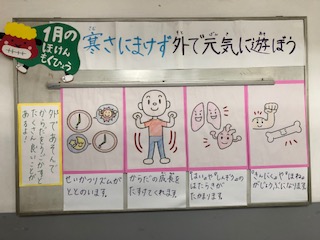 1月の
ほけん
もくひょう
寒さにまけず外で元気に遊ぼう
外であそんで
からだをうごかすと
たくさん良いことが
あるよ!
せいかつリズムが
ととのいます。
からだの成長を
たすけてくれます。
はいや、しんぞうの
はたらきが
たかまります。
きんにくや、ほねが
じょうぶになります。